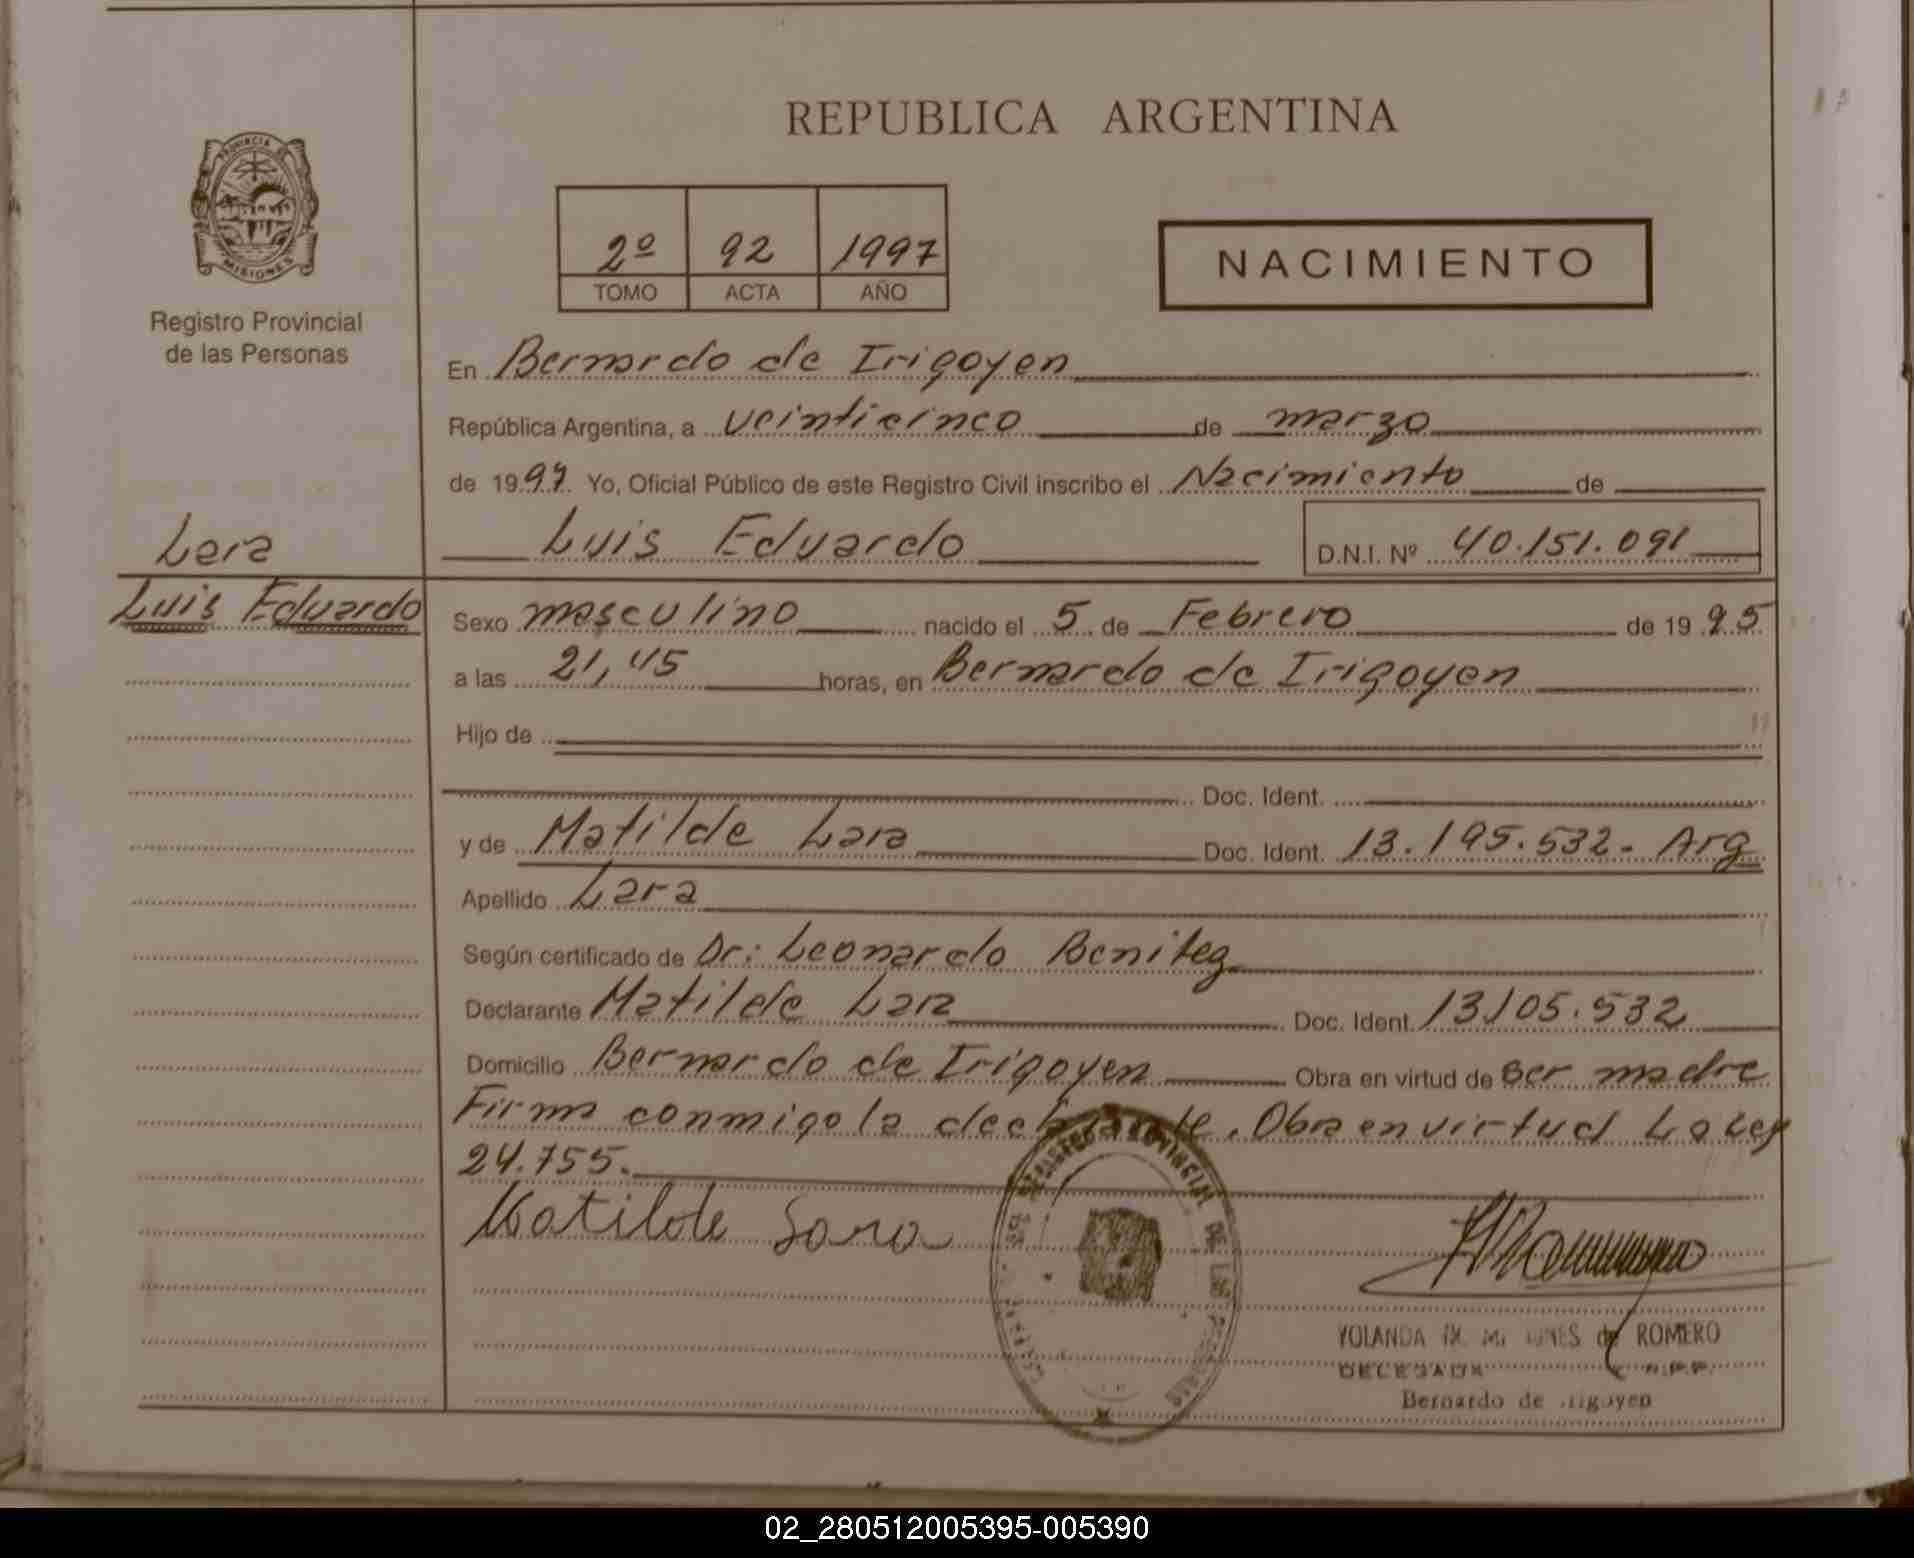 REPUBLICA ARGENTINA
PROVINCIA DE
MISIONES
Registro Provincial
de las Personas
2º 92 1997
TOMO ACTA AÑO
NACIMIENTO
En Bernardo de Irigoyen
República Argentina, a veinticinco de marzo
de 1997 Yo, Oficial Público de este Registro Civil inscribo el Nacimiento de
Luis Eduardo D.N.I. Nº 40.151.091
Lara
Luis Eduardo
Sexo masculino nacido el 5 de Febrero de 1995
a las 21,45 horas, en Bernardo de Irigoyen
Hijo de
Doc. Ident.
y de Matilde Lara Doc. Ident. 13.195.532- Arg
Apellido Lara
Según certificado de Dr: Leonardo Benitez
Declarante Matilde Lara Doc. Ident. 13105.532
Domicilio Bernardo de Irigoyen Obra en virtud de ser madre
Firma conmigo la declarante. Obra en virtud La Ley
24.755.
Matilde Lara
REGISTRO PROVINCIAL DE LAS
YOLANDA de ROMERO
DELEGADA R.P.P.
Bernardo de Irigoyen
02_280512005395-005390